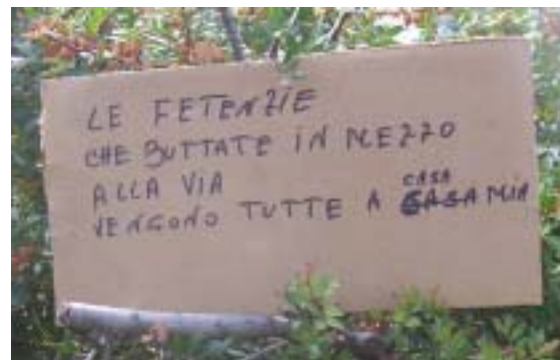 LE FETENZIE
CHE BUTTATE IN MEZZO
ALLA VIA
VENGONO TUTTE A CASA MIA